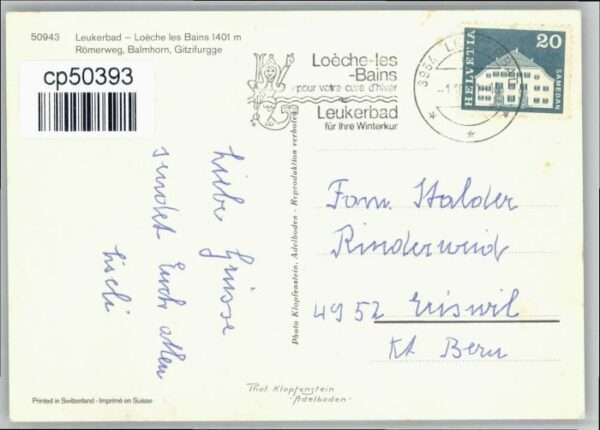 50943 Leukerbad – Loèche les Bains 1401 m
Römerweg, Balmhorn, Gitzifurgge
cp50393
Loèche-les
-Bains
pour votre cure d'hiver
Leukerbad
für Ihre Winterkur
3954
HELVETIA
20
SAMEDAN
Liebe Grüsse
sendet Euch allen
Photo Klopfenstein, Adelboden - Reproduktion verboten
Fam. Stalder
Rinderweid
4952 Eriswil
Kt Bern
Phot Klopfenstein
-Adelboden-
Printed in Switzerland - Imprimé en Suisse